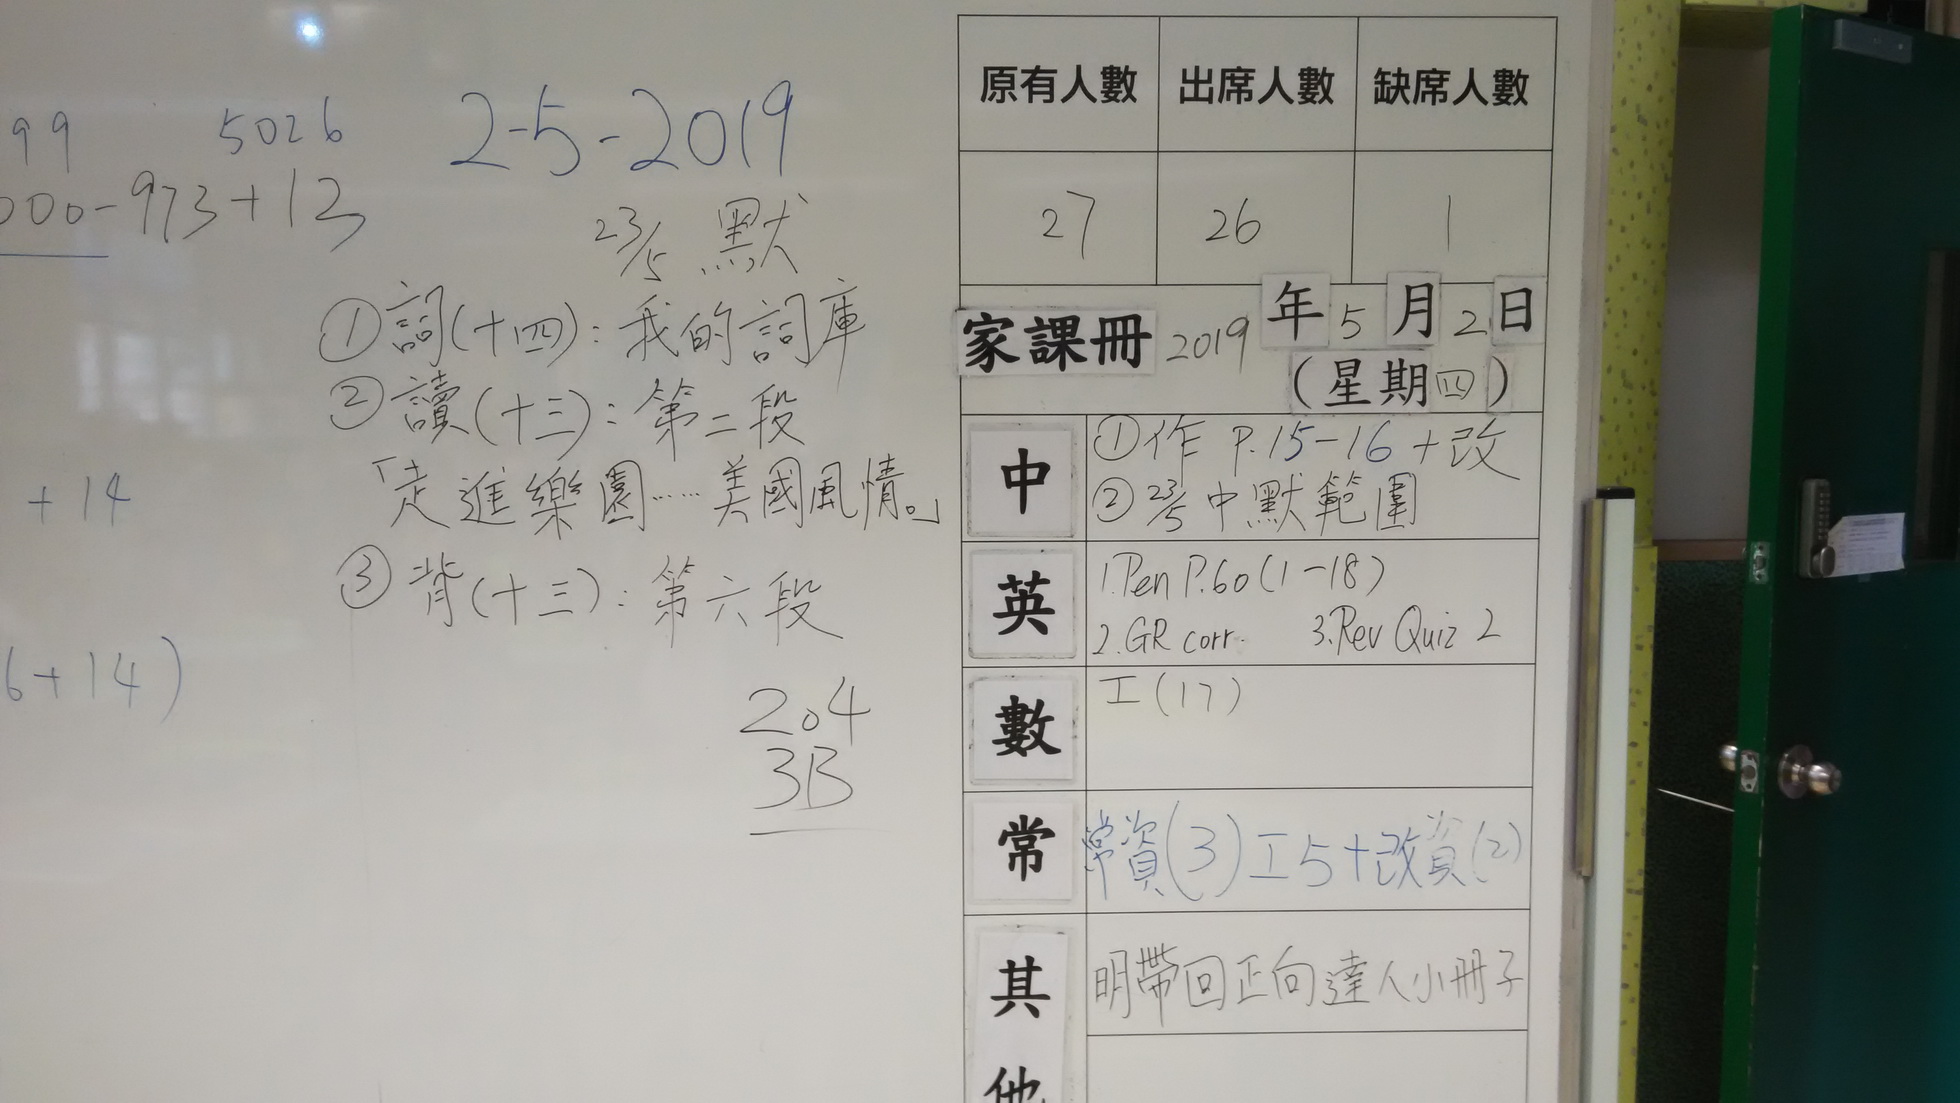 99 5026
000-973+12
+14
6+14)
2-5-2019
23/5 默
①詞(十四):我的詞庫
②讀(十三):第二段
「走進樂園……美國風情。」
③背(十三):第六段
204
3B
原有人數 出席人數 缺席人數
27 26 1
家課冊 2019年5月2日
(星期四)
中 ①作 P.15-16+改
②23/5中默範圍
英 1.Pen P.60(1-18)
2.GR corr. 3.Rev Quiz 2
數 工(17)
常 常資(3)工5+改資(2)
其他 明帶回正向達人小冊子